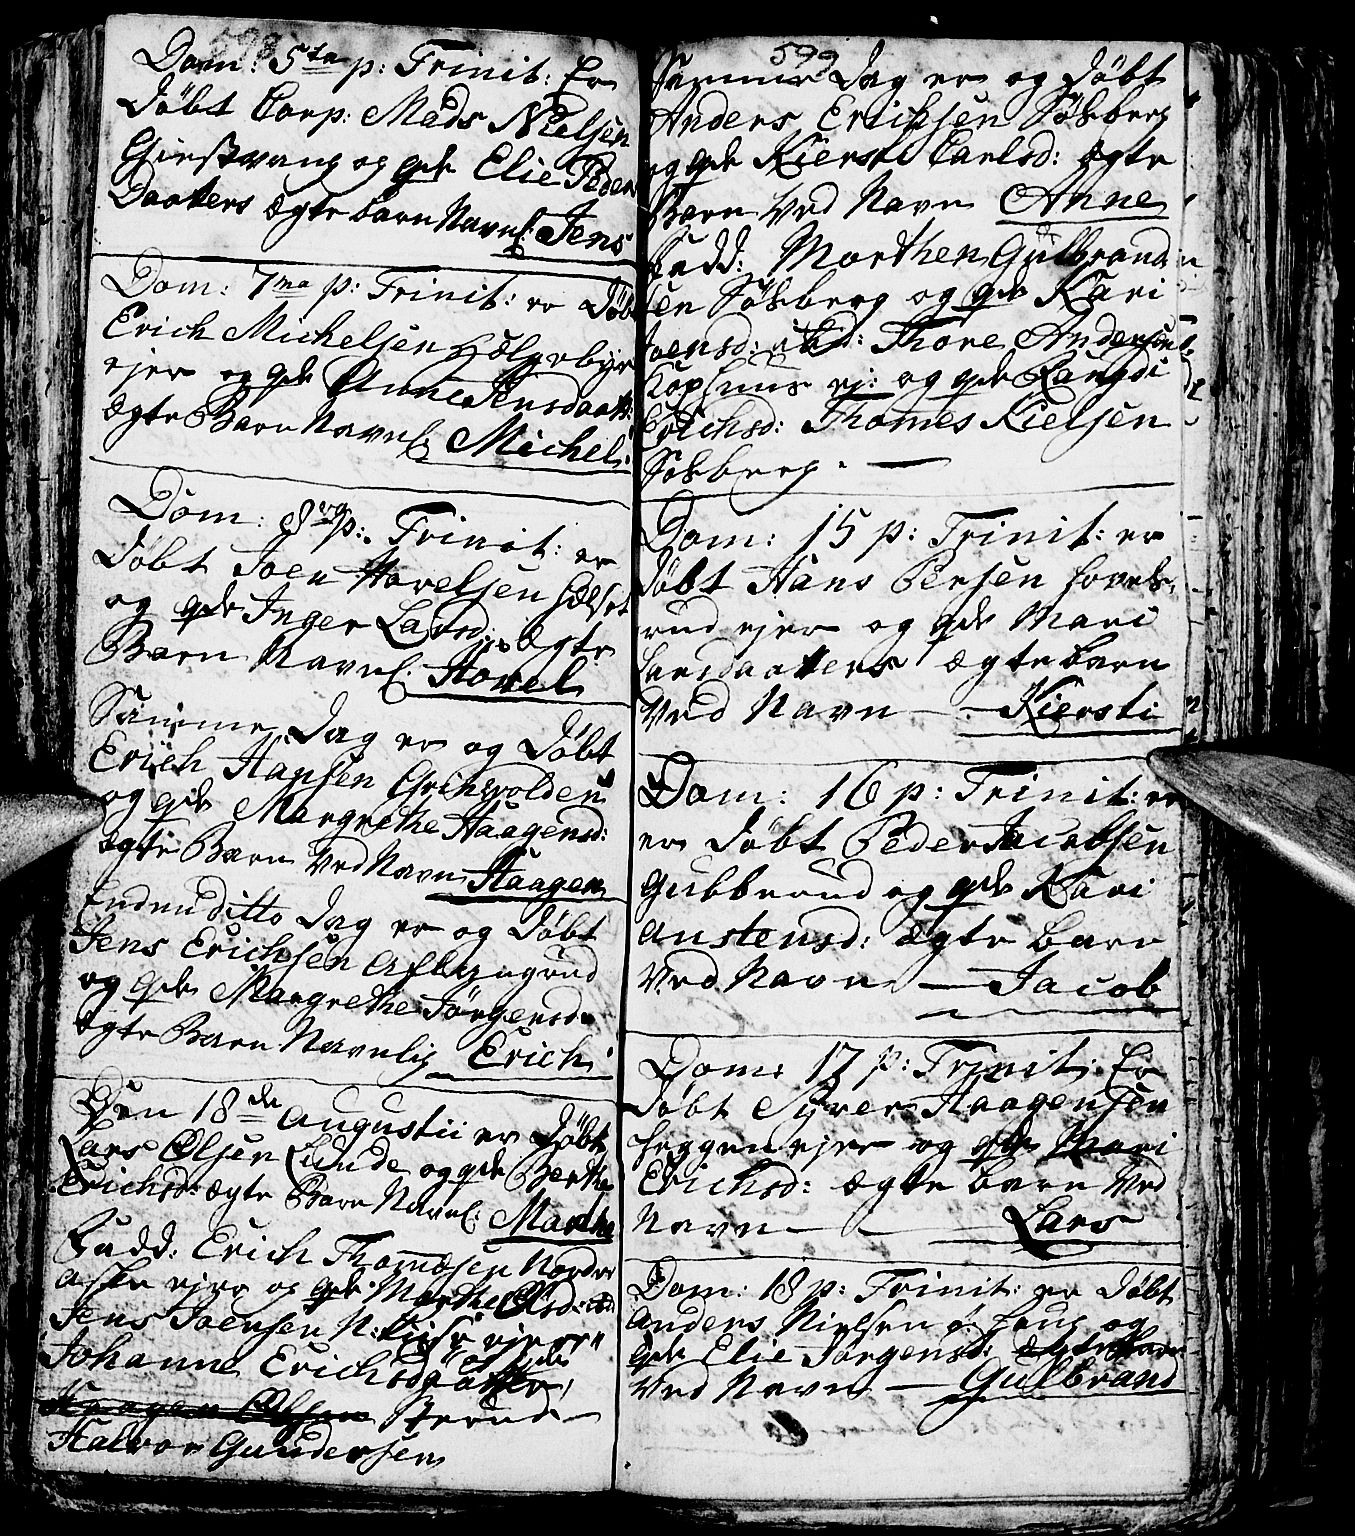 598
Dom: 5ta p: Trinit: Er
Døbt Corp: Mads Nielsen
og qde Elie Peders
Daatters ægte barn Navnl: Jens
Dom: 7ma p: Trinit: er Døbt
Erich Michelsen
ejer og qde Anne Jensdaatt:
ægte Barn Navnl: Michel
Dom: 8va p: Trinit: er
Døbt Joen Hovelsen
og qde Inger Larsd: ægte
Barn Navnl: Hovel
Samme Dag er og Døbt
Erich Hansen
og qde Margrethe Haagensd:
ægte Barn Ved Navn Haagen
Endnu ditto Dag er og Døbt
Jens Erichsen
og qde Margrethe Jørgensd:
ægte Barn Navnlig Erich
Den 18de Augustii er Døbt
Lars Olsen Lunde og qde Berthe
Erichsd: ægte Barn Navnl: Marthe
Fadd: Erich Thomæsen Nordre
ejer og qde Marthe Olsd: ibd:
Jens Joensen N:
Johanne Erichsdaatter,
Halvor Gundersen
599
Samme Dag er og Døbt
Anders Erichsen Søhberg
og qde Kiersti Carlsd: ægte
Barn Ved Navn Anne
Fadd: Morthen Gulbrand
sen Søhberg og qde Kari
Joensd: ibid: Thore Andersen
ej: og qde Rangdi
Erichsd: Thomes Kielsen
Søhberg.
Dom: 15 p: Trinit: er
Døbt Hans Persen Hovels-
rud ejer og qde Mari
Larsdaatters ægte barn
Ved Navn Kiersti
Dom: 16 p: Trinit: er
er Døbt Peder Jacobsen
Gubberud og qde Kari
Austensd: ægte barn
Ved Navn Jacob
Dom: 17 p: Trinit: Er
Døbt Syver Haagensen
Heggen ejer og qde Mari
Erichsd: ægte barn Ved
Navn Lars
Dom: 18 p: Trinit: er Døbt
Anders Nielsen ø: Houg og
qde Elie Jørgensd: ægte Barn
Ved Navn Gulbrand